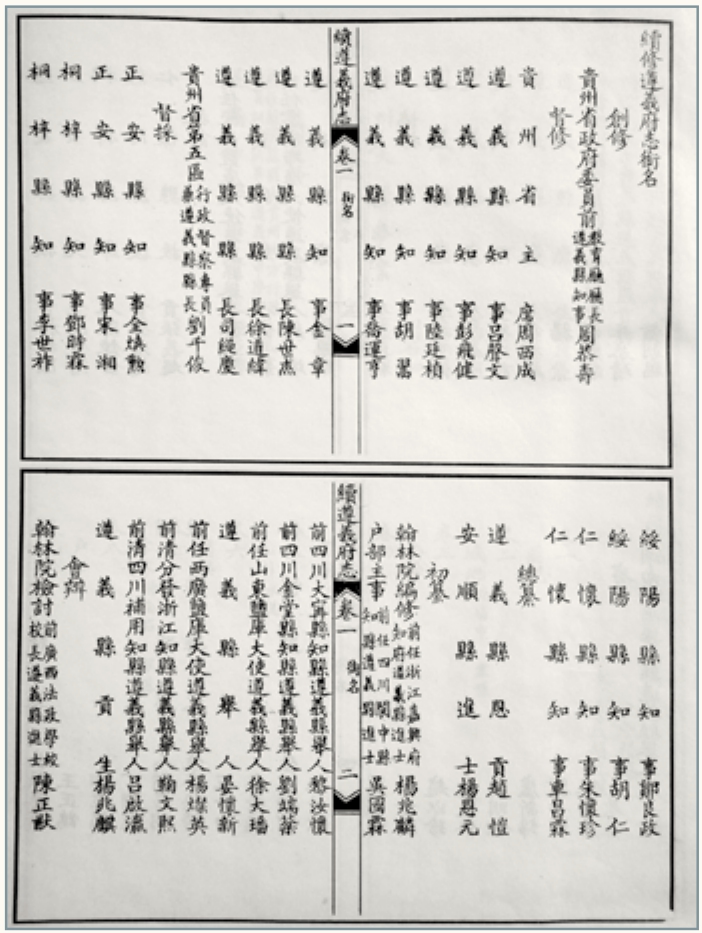 續修遵義府志銜名
創修
貴州省政府委員前教育廳廳長遵義縣知事周恭壽
督修
貴州省主席周西成
遵義縣知事呂聲文
遵義縣知事彭飛健
遵義縣知事陸廷楨
遵義縣知事胡翯
遵義縣知事喬運亨
續遵義府志 卷一 銜名 一
遵義縣知事金章
遵義縣縣長陳世杰
遵義縣縣長徐道緯
遵義縣縣長司繩慶
貴州省第五區行政督察專員兼遵義縣縣長劉千俊
督採
正安縣知事金煥勲
正安縣知事宋湘
桐梓縣知事鄧時霖
桐梓縣知事李世祚
綏陽縣知事鄭良政
綏陽縣知事胡仁
仁懷縣知事朱懷珍
仁懷縣知事車呂霖
總纂
遵義恩貢趙愷
安順縣進士楊恩元
初纂
翰林院編修前任浙江嘉興府知府遵義縣進士楊兆麟
户部主事前任四川閬中縣知縣遵義縣進士吳國霖
續遵義府志 卷一 銜名 二
前四川大寧縣知縣遵義縣舉人黎汝懷
前四川金堂縣知縣遵義縣舉人劉端棻
前任山東鹽庫大使遵義縣舉人徐大璠
遵義縣舉人晏懷新
前任兩廣鹽庫大使遵義縣舉人楊燦英
前清分發浙江知縣遵義縣舉人翰文熙
前清四川補用知縣遵義縣舉人呂啟瀛
遵義縣貢生楊兆麒
會辦
翰林院檢討前廣西法政學校校長遵義縣進士陳正猷